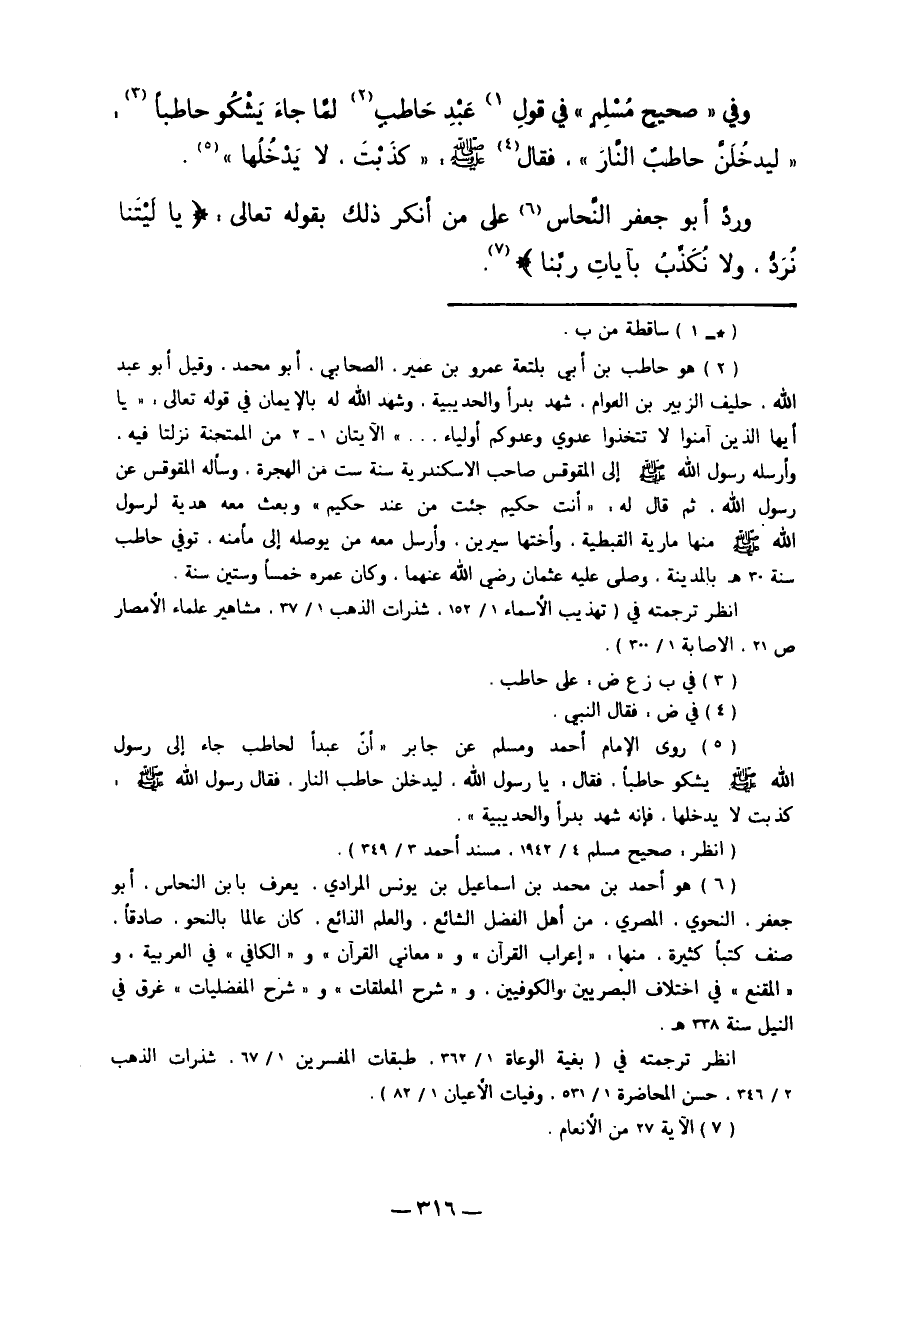 وفي « صحيح مُسْلِمٍ » في قولِ (١) عَبْدِ حَاطبٍ (٢) لمَّا جاءَ يَشْكُو حاطباً (٣) :
« ليدخُلَنَّ حاطبٌ النَّارَ » ، فقال(٤) ﷺ : « كذَبْتَ ، لا يَدْخُلُها »(٥) .
وردَّ أبو جعفر النَّحاس(٦) على من أنكر ذلك بقوله تعالى : ﴿ يا لَيْتَنا
نُرَدُّ ، ولا نُكَذِّبُ بآياتِ ربِّنا ﴾(٧).
( ٭ ــ ١ ) ساقطة من ب .
( ٢ ) هو حاطب بن أبي بلتعة عمرو بن عمير ، الصحابي ، أبو محمد ، وقيل أبو عبد
الله ، حليف الزبير بن العوام ، شهد بدراً والحديبية ، وشهد الله له بالإيمان في قوله تعالى : « يا
أيها الذين آمنوا لا تتخذوا عدوي وعدوكم أولياء . . . » الآيتان ١ ـ ٢ من الممتحنة نزلتا فيه ،
وأرسله رسول الله ﷺ إلى المقوقس صاحب الاسكندرية سنة ست من الهجرة ، وسأله المقوقس عن
رسول الله ، ثم قال له : « أنت حكيم جئت من عند حكيم » وبعث معه هدية لرسول
الله ﷺ منها مارية القبطية ، وأختها سيرين ، وأرسل معه من يوصله إلى مأمنه ، توفي حاطب
سنة ٣٠ هـ بالمدينة ، وصلى عليه عثمان رضي الله عنهما ، وكان عمره خمساً وستين سنة .
انظر ترجمته في ( تهذيب الأسماء ١ / ١٥٢ ، شذرات الذهب ١ / ٣٧ ، مشاهير علماء الأمصار
ص ٢١ ، الاصابة ١ / ٣٠٠ ) .
( ٣ ) في ب ز ع ض : على حاطب .
( ٤ ) في ض : فقال النبي .
( ٥ ) روى الإمام أحمد ومسلم عن جابر « أنّ عبداً لحاطب جاء إلى رسول
الله ﷺ يشكو حاطباً ، فقال : يا رسول الله ، ليدخلن حاطب النار ، فقال رسول الله ﷺ :
كذبت لا يدخلها ، فإنه شهد بدراً والحديبية » .
( انظر : صحيح مسلم ٤ / ١٩٤٢ ، مسند أحمد ٣ / ٣٤٩ ) .
( ٦ ) هو أحمد بن محمد بن اسماعيل بن يونس المرادي ، يعرف بابن النحاس ، أبو
جعفر ، النحوي ، المصري ، من أهل الفضل الشائع ، والعلم الذائع ، كان عالما بالنحو ، صادقاً ،
صنف كتباً كثيرة ، منها : « إعراب القرآن » و « معاني القرآن » و « الكافي » في العربية ، و
« المقنع » في اختلاف البصريين والكوفيين ، و « شرح المعلقات » و « شرح المفضليات » غرق في
النيل سنة ٣٣٨ هـ .
انظر ترجمته في ( بغية الوعاة ١ / ٣٦٢ ، طبقات المفسرين ١ / ٦٧ ، شذرات الذهب
٢ / ٣٤٦ ، حسن المحاضرة ١ / ٥٣١ ، وفيات الأعيان ١ / ٨٢ ) .
( ٧ ) الآية ٢٧ من الأنعام .
— ٣١٦ —